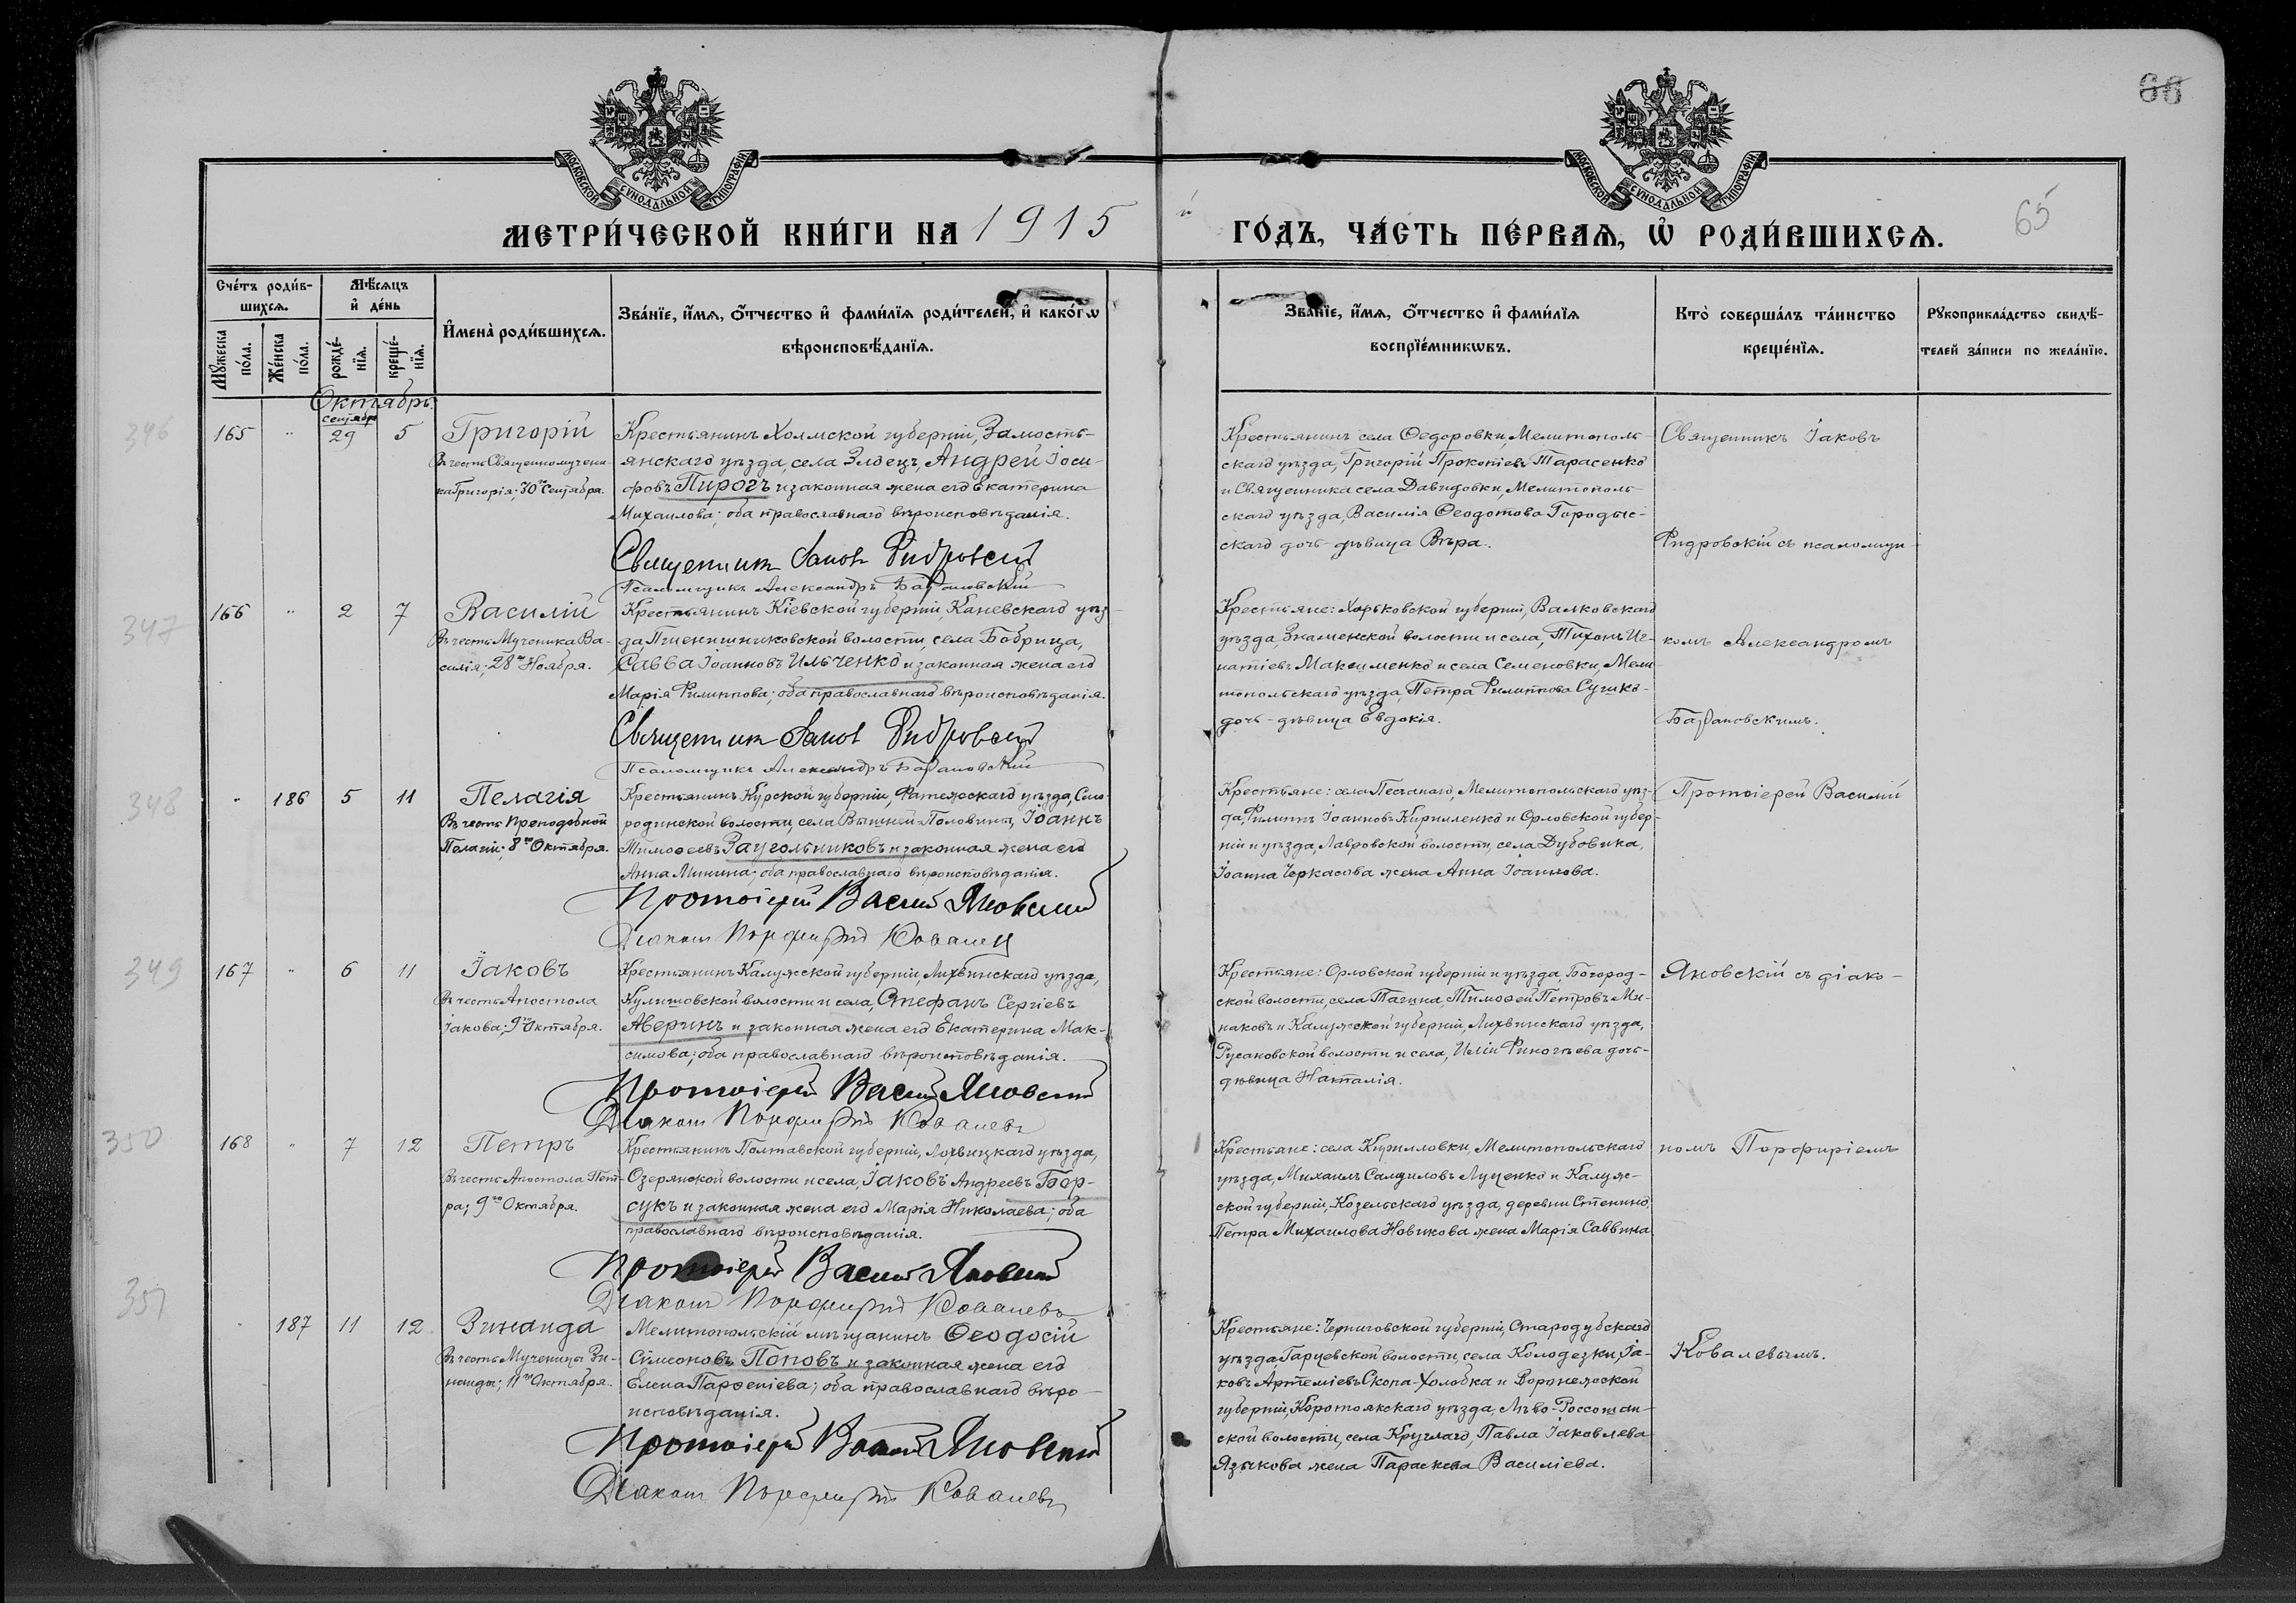 66
МОСКОВСКОЙ СУНОДАЛЬНОЙ ТИПОГРАФІИ
МОСКОВСКОЙ СУНОДАЛЬНОЙ ТИПОГРАФІИ
МЕТРИ́ЧЕСКОЙ КНИ́ГИ НА 1915
й ГО́ДЪ, ЧА́СТЬ ПЕ́РВАѦ, Ѡ҆ РОДИ́ВШИХСѦ.
65
Сче́тъ роди́в-
шихсѧ.
Мꙋ́жеска
по́ла.
Же́нска
по́ла.
Мѣ́сѧцъ
и҆ де́нь
рожде́-
нїѧ.
креще́-
нїѧ.
И҆мена̀ роди́вшихсѧ.
Зва́нїе, и҆́мѧ, о҆́тчество и҆ фами́лїѧ роди́телей, и҆ како́гѡ
вѣроисповѣ́данїѧ.
Зва́нїе, и҆́мѧ, о҆́тчество и҆ фами́лїѧ
воспрїе́мникѡвъ.
Кто̀ соверша́лъ та́инство
креще́нїѧ.
Рꙋкоприкла́дство свидѣ́-
телей за́писи по жела́нїю.
Октябрь.
346
165
"
сентября
29
5
Григорій
Въ честь Священномучени-
ка Григорія; 30го Сентября.
Крестьянинъ Холмской губерніи, Замость-
янскаго уѣзда, села Злоецъ, Андрей Іоси-
фовъ Пирогъ и законная жена его Екатерина
Михаилова; оба православнаго вѣроисповѣданія.
Священникъ Іаковъ Ридровскій
Псаломщикъ Александръ Барановскій
Крестьянинъ села Ѳедоровки, Мелитополь-
скаго уѣзда, Григорій Прокопіевъ Тарасенко
и Священника села Давидовки, Мелитополь-
скаго уѣзда, Василія Ѳеодотова Городыс-
скаго дочь-дѣвица Вѣра.
Священникъ Іаковъ
Ридровскій съ псаломщи-
347
166
"
2
7
Василій
Въ честь Мученика Ва-
силія; 28го Ноября.
Крестьянинъ Кіевской губерніи, Каневскаго уѣз-
да, Пшеничниковской волости, села Бобрица,
Савва Іоанновъ Ильченко и законная жена его
Марія Филиппова; оба православнаго вѣроисповѣданія.
Священникъ Іаковъ Ридровскій
Псаломщикъ Александръ Барановскій
Крестьяне: Харьковской губерніи, Валковскаго
уѣзда, Знаменской волости и села, Тихонъ Иг-
натіевъ Максименко и села Семеновки, Мели-
топольскаго уѣзда, Петра Филиппова Сушко-
дочь-дѣвица Евдокія.
комъ Александромъ
Барановскимъ.
348
"
186
5
11
Пелагія
Въ честь Преподобной
Пелагіи; 8го Октября.
Крестьянинъ Курской губерніи, Фатежскаго уѣзда, Смо-
родинской волости, села Вышней-Половины, Іоаннъ
Тимоѳеевъ Заугольниковъ и законная жена его
Анна Минина; оба православнаго вѣроисповѣданія.
Протоіерей Василій Яновскій
Діаконъ Порфирій Ковалевъ
Крестьяне: села Песчанаго, Мелитопольскаго уѣз-
да, Филиппъ Іоанновъ Кирилленко и Орловской губер-
ніи и уѣзда, Лавровской волости, села Дубовика,
Іоанна Черкасова жена Анна Іоаннова.
Протоіерей Василій
349
167
"
6
11
Іаковъ
Въ честь Апостола
Іакова; 9го Октября.
Крестьянинъ Калужской губерніи, Лихвинскаго уѣзда,
Кулешовской волости и села, Стефанъ Сергіевъ
Аверинъ и законная жена его Екатерина Мак-
симова; оба православнаго вѣроисповѣданія.
Протоіерей Василій Яновскій
Діаконъ Порфирій Ковалевъ
Крестьяне: Орловской губерніи и уѣзда, Богород-
ской волости, села Тагина, Тимоѳей Петровъ Ми-
наковъ и Калужской губерніи, Лихвинскаго уѣзда,
Русановской волости и села, Иліи Финогѣева дочь-
дѣвица Наталія.
Яновскій съ діако-
350
168
"
7
12
Петръ
Въ честь Апостола Пет-
ра; 9го Октября.
Крестьянинъ Полтавской губерніи, Лохвицкаго уѣзда,
Озерянской волости и села, Іаковъ Андреевъ Бор-
сукъ и законная жена его Марія Николаева; оба
православнаго вѣроисповѣданія.
Протоіерей Василій Яновскій
Діаконъ Порфирій Ковалевъ
Крестьяне: села Кирилловки, Мелитопольскаго
уѣзда, Михаилъ Самуиловъ Луценко и Калуж-
ской губерніи, Козельскаго уѣзда, деревни Стенино,
Петра Михаилова Новикова жена Марія Саввина
номъ Порфиріемъ
351
"
187
11
12
Зинаида
Въ честь Мученицы Зи-
наиды; 11го Октября.
Мелитопольскій мѣщанинъ Ѳеодосій
Сѵмеоновъ Поповъ и законная жена его
Елена Парѳеніева; оба православнаго вѣро-
исповѣданія.
Протоіерей Василій Яновскій
Діаконъ Порфирій Ковалевъ
Крестьяне: Черниговской губерніи, Стародубскаго
уѣзда, Гарцевской волости, села Колодезки, Іа-
ковъ Артеміевъ Скопа-Холобка и Воронежской
губерніи, Коротоякскаго уѣзда, Лѣво-Россошан-
ской волости, села Круглаго, Павла Іаковлева
Языкова жена Параскева Василіева.
Ковалевымъ.